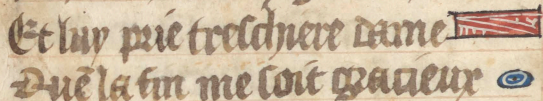 Et luy prie treschiere dame
Que la fin me soit gracieux